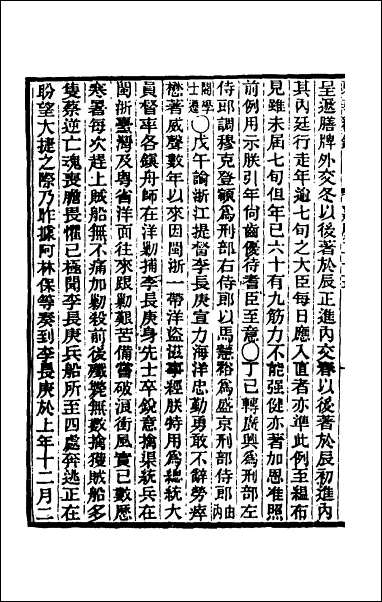 呈遞膳牌外交冬以後著於辰正進內交春以後著於辰初進內
其內廷行走年逾七旬之大臣每日應入值者亦準此例至縕布
見雖未届七旬但年已六十有九筋力不能强健亦著加恩准照
前例用示朕引年尙齒優待耆臣至意〇丁巳轉廣興爲刑部左
侍郎調穆克登額爲刑部右侍郎以馬慧裕爲盛京刑部侍郎由
閣學
士遷〇戊午諭浙江提督李長庚宣力海洋忠勤勇敢不辭勞瘁
懋著威聲數年以來因閩浙一帶洋盜滋事經朕特用爲總統大
員督率各鎭舟師在洋勦捕李長庚身先士卒銳意擒渠統兵在
閩浙臺灣及粵省洋面往來跟勦艱苦備嘗破浪衝風實已數歷
寒暑每次趕上賊船無不痛加勦殺前後殲斃無數擒獲賊船多
隻蔡逆亡魂喪膽畏懼已極聞李長庚兵船所至四處奔逃正在
盼望大捷之際乃昨據阿林保等奏到李長庚於上年十二月二